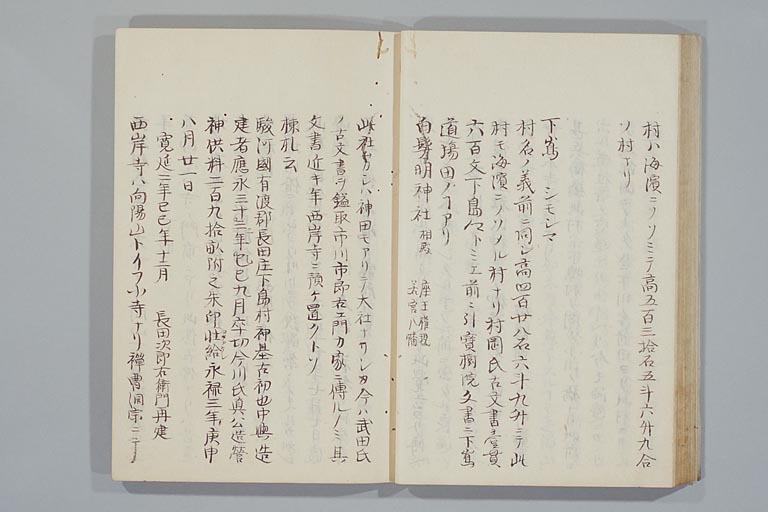 村ハ海濱ニノソミテ高五百三拾石五斗六升九合
ノ村ナリ
下嶌 シモシマ
村名ノ義前ニ同シ高四百廿八石六斗九升ニテ此
村モ海濱ニノソメル村ナリ村岡氏古文書壹貫
六百文下島トミエ前ニ引寶樹院文書ニ下嶌
道場田ノフアリ
白髭明神社 相殿 座王権現 若宮八幡
此社昔シハ神田モアリテ大社ナリシカ今ハ武田氏
ノ古文書ヲ鎰取市川市郎右エ門カ家ニ傳ルノミ其
文書近キ年西岸寺ニ預ケ置クトソ
棟札云
駿河國有渡郡長田庄下島村神基古初也中興造
建者應永三十三年己巳九月卒切今川氏奥公造營
神供料二百九拾畝附之朱印社給永禄三年庚申
八月廿一日
寛延二年己巳年十二月 長田次郎右衛門再建
西岸寺ハ向陽山トイフ小寺ナリ禅曹洞宗ニテ